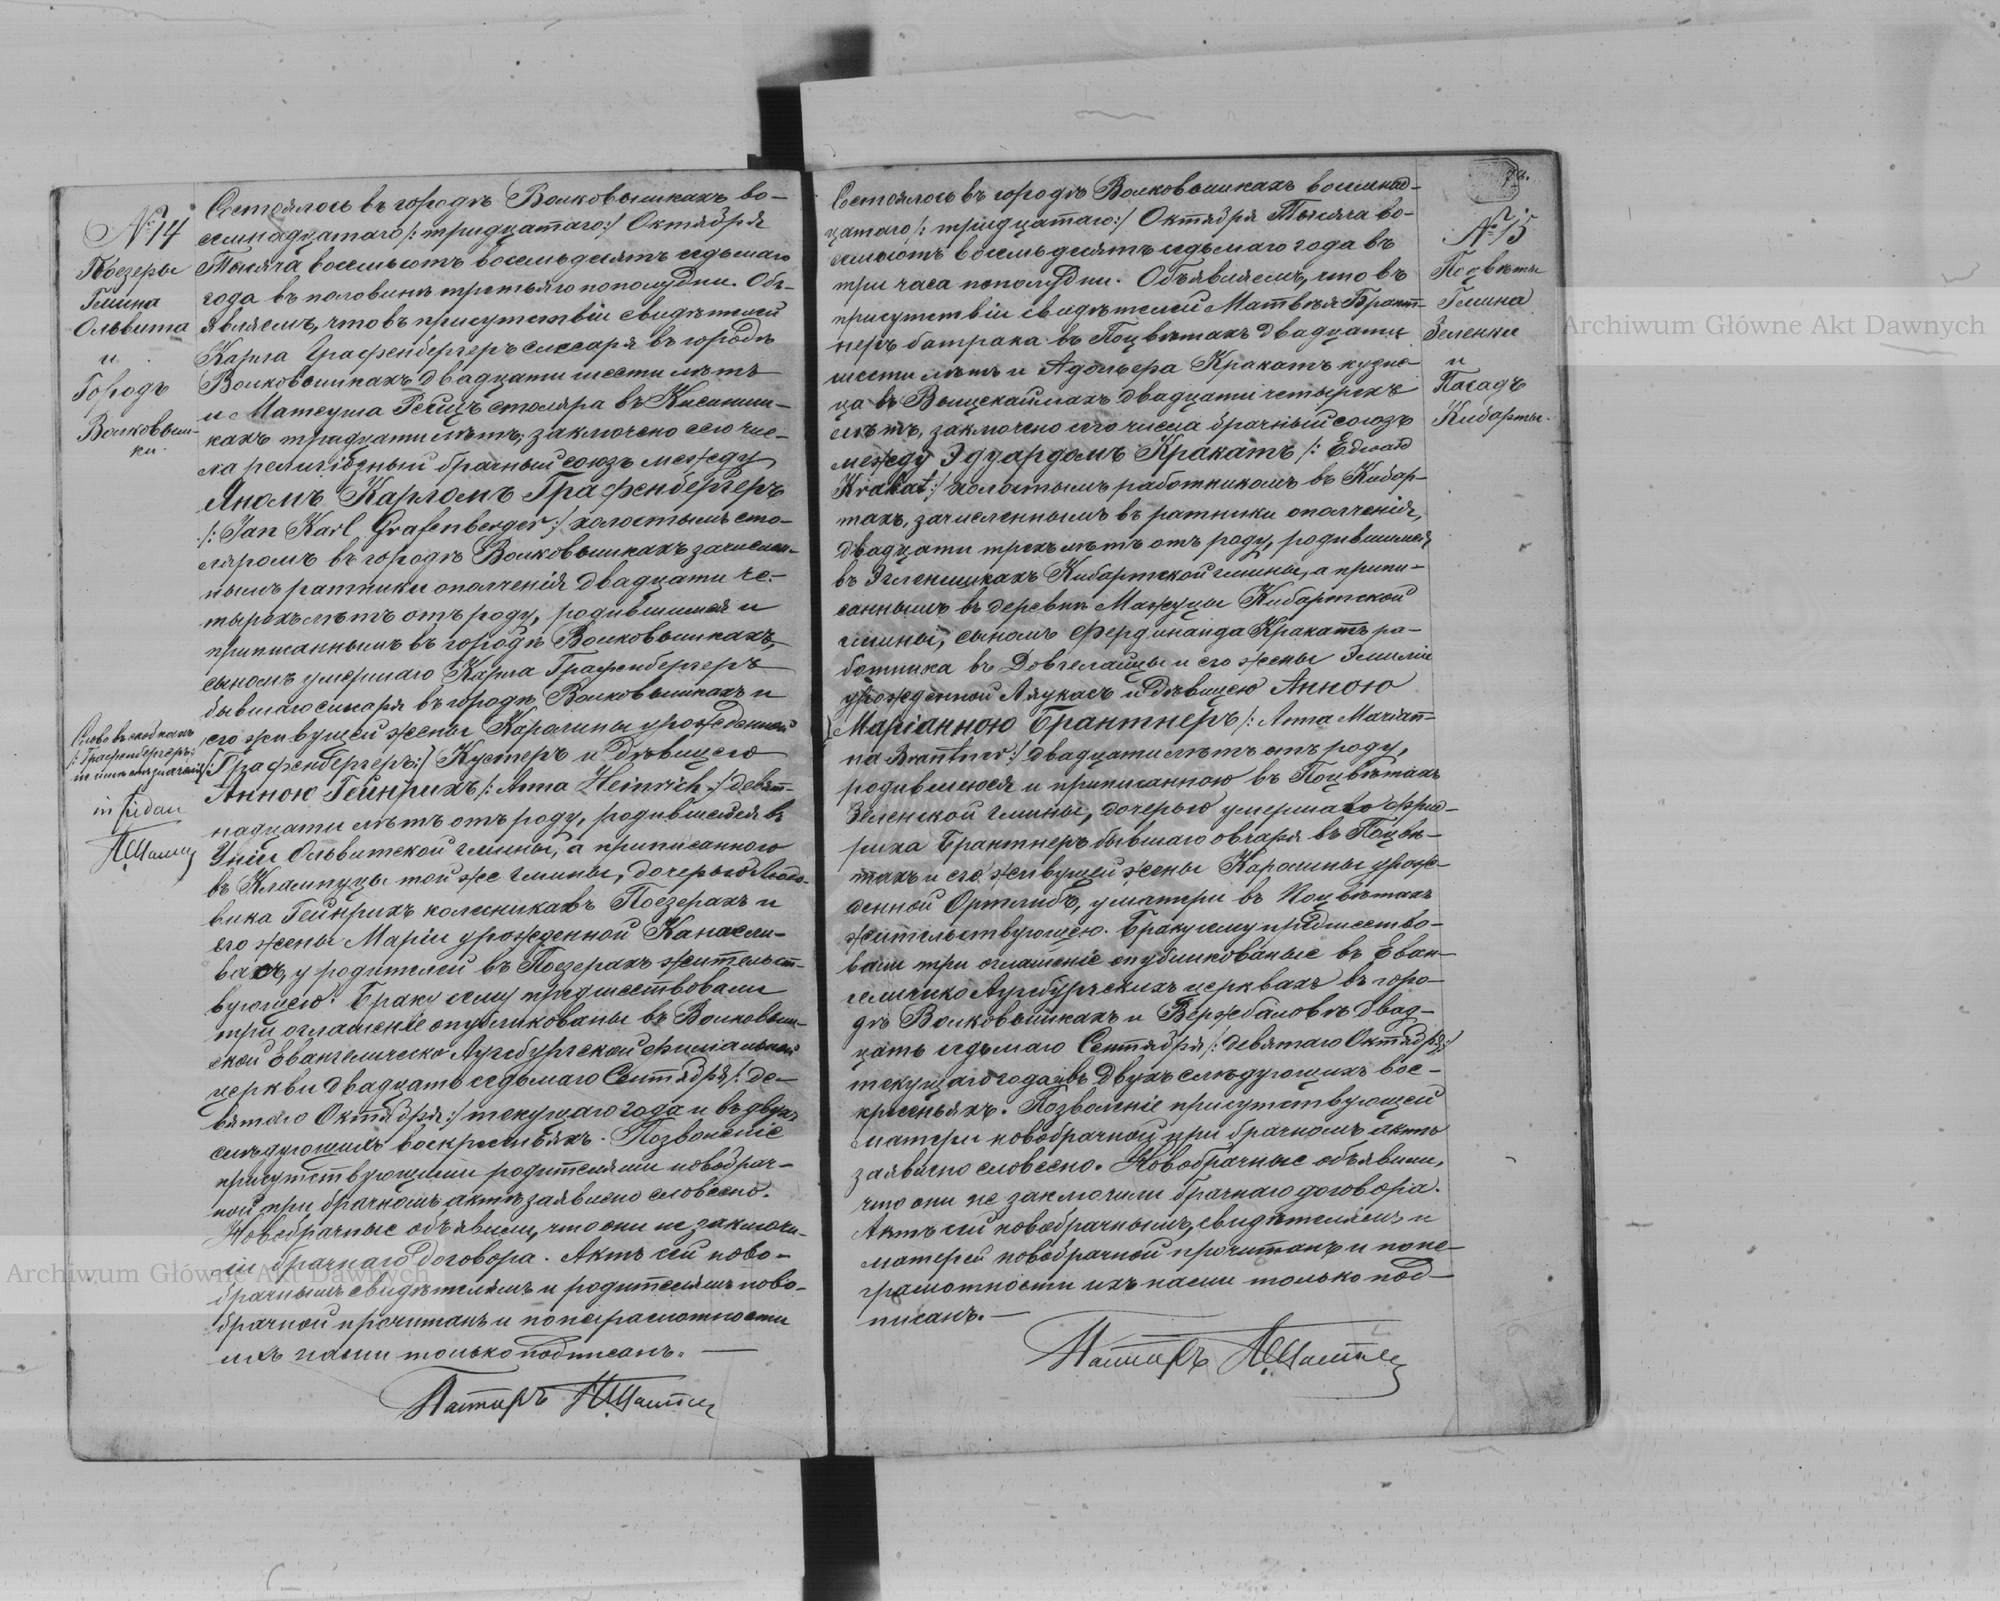 № 14
Поезеры
Гмина
Ольвита
и
Городъ
Волковыш-
ки.
Состоялось въ городѣ Волковышкахъ во-
семнадцатаго /: тридцатаго :/ Октября
Тысяча восемьсотъ восемьдесятъ седьмаго
года въ половинѣ третьяго пополудни. Объ-
являемъ, что въ присутствіи свидѣтелей
Карла Графенбергеръ слесаря въ городѣ
Волковышкахъ двадцати шести лѣтъ
и Матеуша столяра въ
кахъ тридцати лѣтъ, заключено сего чис-
ла религіозный брачный союзъ между
Яномъ Карломъ Графенбергеръ
/: Jan Karl Grafenberger :/ холостымъ сто-
ляромъ въ городѣ Волковышкахъ зачислен-
нымъ ратники ополченія двадцати че-
тырехъ лѣтъ отъ роду, родившимся и
приписаннымъ въ городѣ Волковышкахъ,
сыномъ умершаго Карла Графенбергеръ
бывшаго слесаря въ городѣ Волковышкахъ и
его живущей жены Каролины урожденной
/: Графенбергеръ :/ Кустеръ и дѣвицею
Анною Гейнрихъ /: Anna Heinrich :/ девят-
надцати лѣтъ отъ роду, родившейся въ
Уніи Ольвитской гмины, а приписанного
въ Клампуцы той же гмины, дочерью Людо-
вика Гейнрихъ колесника въ Поезерахъ и
его жены Маріи урожденной Канаели-
васъ, у родителей въ Поезерахъ жительст-
вующею. Браку сему предшествовали
три оглашеніе опубликованы въ Волковыш-
ской Евангелическо Аугсбургской филіальной
церкви двадцать седьмаго Сентября /: де-
вятаго Октября :/ текущаго года и въ двухъ
слѣдующихъ воскресеньяхъ. Позволеніе
присутствующими родителями новобрач-
ной при брачномъ актѣ заявлено словесно.
Новобрачные объявили, что они не заключи-
ли брачнаго договора. Актъ сей ново-
брачнымъ свидѣтелямъ и родителямъ ново-
брачной прочитанъ и по неграмотности
ихъ нами только подписанъ. —
Пасторъ
Слово въ скобкахъ
/: Графенбергеръ :/
не имѣетъ значенія
in fidem
72.
№ 15
Поцвѣты
Гмина
Зеленки
и
Посадъ
Кибарты.
Состоялось въ городѣ Волковышкахъ восемнад-
цатаго /: тридцатаго :/ Октября Тысяча во-
семьсотъ восемьдесятъ седьмаго года въ
три часа пополудни. Объявляемъ, что въ
присутствіи свидѣтелей Матвѣя Брант-
неръ батрака въ Поцвѣтахъ двадцати
шести лѣтъ и Адольфа Кракатъ кузне-
ца въ двадцати четырехъ
лѣтъ, заключено сего числа брачный союзъ
между Эдуардомъ Кракатъ /: Edward
Krakat :/ холостымъ работникомъ въ Кибар-
тахъ, зачисленнымъ въ ратники ополченія,
двадцати трехъ лѣтъ отъ роду, родившимся
въ Кибартской гмины, а припи-
саннымъ въ деревни Мажуцы Кибартской
гмины, сыномъ Фердинанда Кракатъ ра-
ботника въ Довгелайцы и его жены Эмиліи
урожденной и дѣвицею Анною
Маріанною Брантнеръ /: Anna Marian-
na Brantner :/ двадцати лѣтъ отъ роду,
родившеюся и приписанною въ Поцвѣтахъ
Зеленской гмины, дочерью умершаго Фрид-
риха Брантнеръ бывшаго овчаря въ Поцвѣ-
тахъ и его живущей жены Каролины урож-
денной Ортлибъ, у матери въ Поцвѣтахъ
жительствующею. Браку сему предшество-
вали три оглашеніе опубликованые въ Еван-
гелическо Аугсбургскихъ церквахъ въ горо-
дѣ Волковышкахъ и Вержболовѣ двад-
цать седьмаго Сентября /: девятаго Октября :/
текущаго года и въ двухъ слѣдующихъ вос-
кресеньяхъ. Позволеніе присутствующей
матери новобрачной при брачномъ актѣ
заявлено словесно. Новобрачные объявили,
что они не заключили брачнаго договора.
Актъ сей новобрачнымъ, свидѣтелямъ и
матерей новобрачной прочитанъ и по не-
грамотности ихъ нами только под-
писанъ. —
Пасторъ
Archiwum Główne Akt Dawnych
Archiwum Główne Akt Dawnych